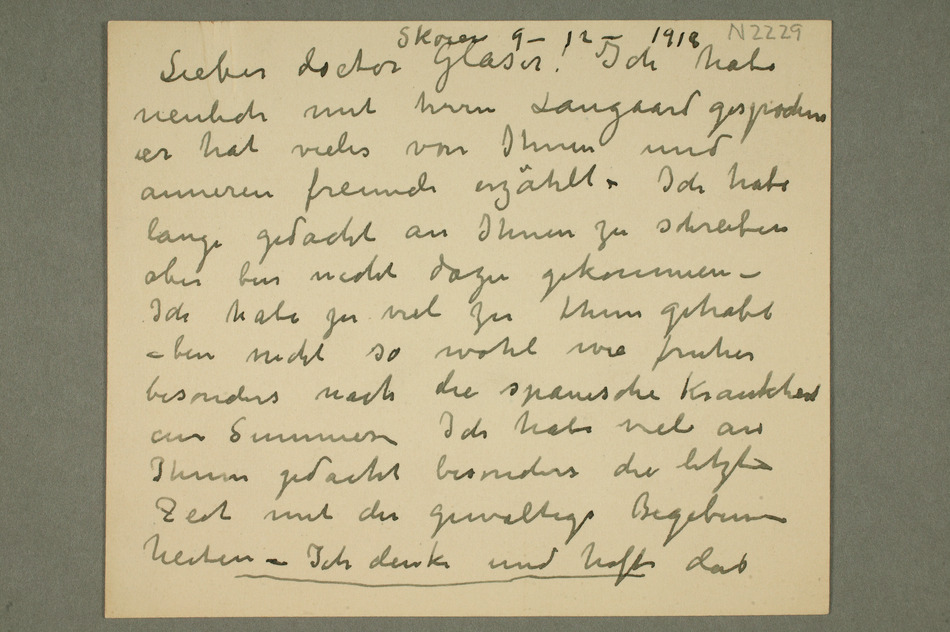 Skøien 9 – 12 – 1918 N2229
Lieber doctor Glaser! Ich habe
neulich mit Herrn Langaard gesprochen
er hat vieles von Ihnen und
anneren freunde erzählt. Ich habe
lange gedacht an Ihnen zu schreiben
aber bin nicht dazu gekommen –
Ich habe zu viel zu thun gehabt
– bin nicht so wohl wie früher
besonders nach die spanische Krankheit
am Summer Ich habe viel an
Ihnen gedacht besonders die letzte
Zeit mit die gewaltige Begeben
heiten – Ich denke und hoffe das